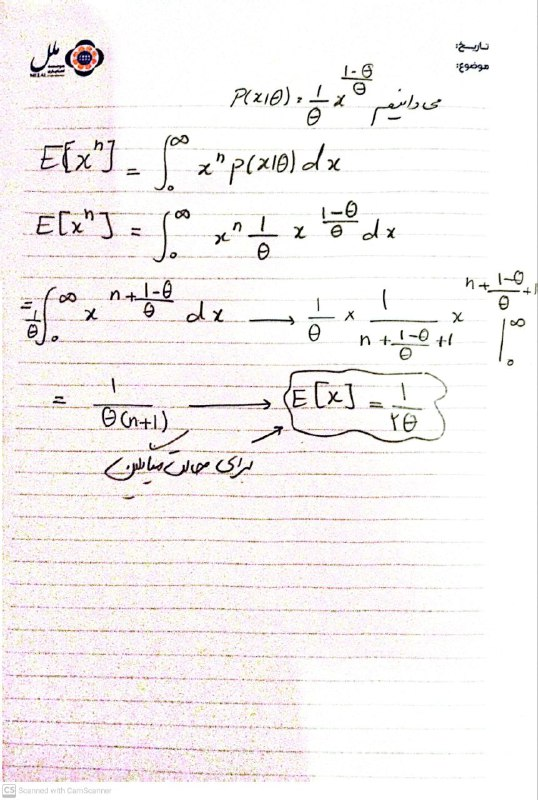 تاریخ:
موضوع:
ملل
MELAL
می دانیم P(x|θ) = 1/θ x^((1-θ)/θ)
E[x^n] = ∫₀^∞ x^n p(x|θ) dx
E[x^n] = ∫₀^∞ x^n 1/θ x^((1-θ)/θ) dx
= 1/θ ∫₀^∞ x^(n+(1-θ)/θ) dx → 1/θ × 1/(n+(1-θ)/θ+1) x^(n+(1-θ)/θ+1) |₀^∞
= 1/(θ(n+1)) → E[x] = 1/(۲θ)
برای حالت میانگین
CS Scanned with CamScanner